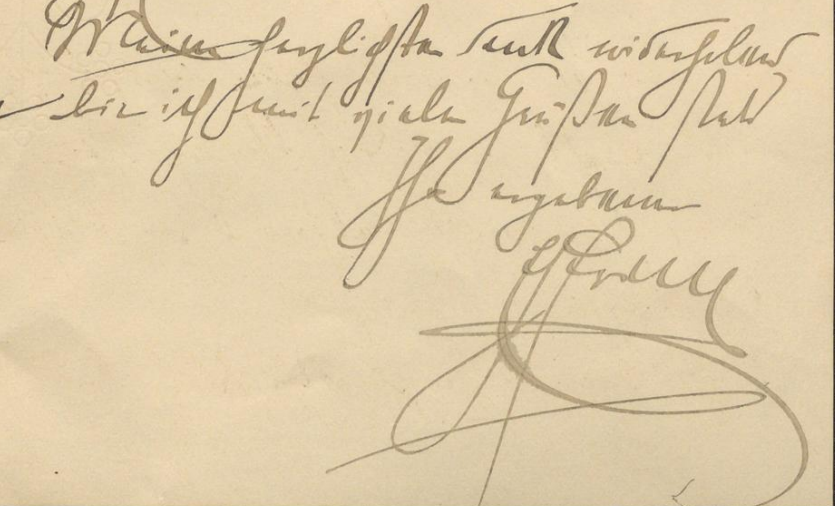 Meinen herzlichsten Dank wiederholend
bin ich mit vielen Grüßen stets
Ihr ergebener